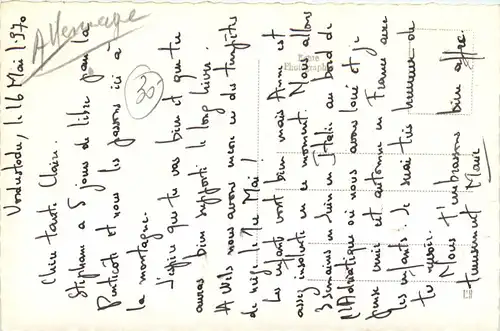 Allemagne
30
Vorderstadu, le 16 Mai 1970
Chère tante Claire,
Stéphane a 5 jours de libre pour la
Pentecôte et nous les passons ici à
la montagne.
J'espère que tu vas bien et que tu
auras bien supporté le long hiver.
A Uls nous avons encore eu des tempêtes
de neige le 1er Mai !
Les enfants vont bien mais Anne est
assez insolente en ce moment. Nous allons
3 semaines en Juin en Italie au bord de
l'Adriatique où nous avons loué et je
pense venir cet automne en France avec
les enfants. Je serai très heureuse de
te revoir.
Nous t'embrassons bien affec-
tueusement Marie
Photographie